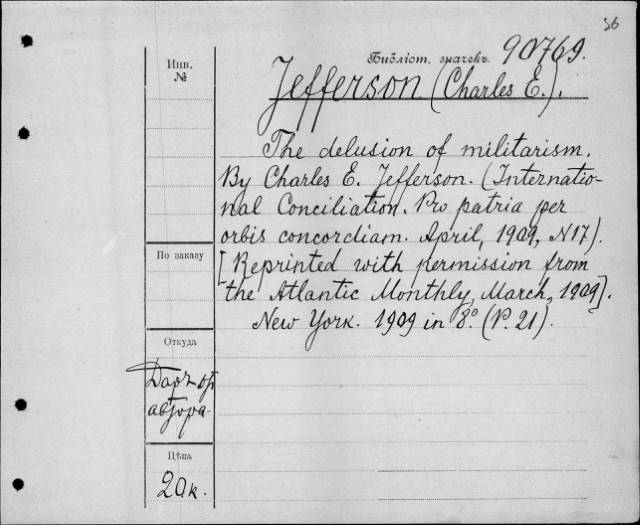 56
Инв.
№
Библіот. значекъ. 90769.
Jefferson (Charles E.).
The delusion of militarism.
By Charles E. Jefferson. (Internatio-
nal Conciliation. Pro patria per
orbis concordiam. April, 1909, N17).
[Reprinted with permission from
the Atlantic Monthly, March, 1909].
New York. 1909 in 8º. (P. 21).
По заказу
Откуда
Даръ от
автора
Цѣна
20к.